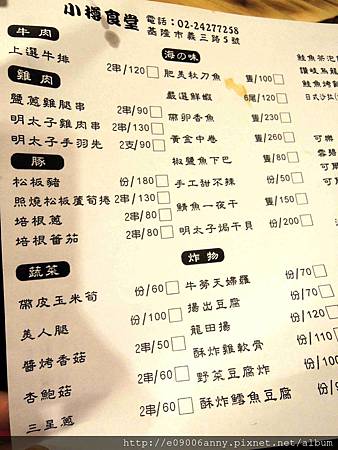 小樽食堂
電話：02-24277258
基隆市義三路5號
牛肉
上選牛排 2串/120
雞肉
鹽蔥雞腿串 2串/90
明太子雞肉串 2串/130
明太子手羽先 2支/90
豚
松板豬 份/180
照燒松板蘆筍捲 2串/130
培根蔥 2串/80
培根番茄 2串/80
蔬菜
帶皮玉米筍 份/60
美人腿 份/100
醬烤香菇 2串/50
杏鮑菇 2串/60
三星蔥 2串/60
海の味
肥美秋刀魚 隻/100
嚴選鮮蝦 6尾/120
帶卵香魚 隻/230
黃金中卷 隻/260
椒鹽魚下巴 隻/80
手工甜不辣 份/50
鯖魚一夜干 隻/150
明太子焗干貝 份/200
炸物
牛蒡天婦羅 份/70
揚出豆腐 份/70
龍田揚 份/120
酥炸雞軟骨 份/110
野菜豆腐炸 份/60
酥炸鱈魚豆腐 份/
鮭魚茶泡
讚岐烏龍
鮭魚烤飯
日式沙拉
可樂
雪碧
可
可
http://e09006anny.pixnet.net/album